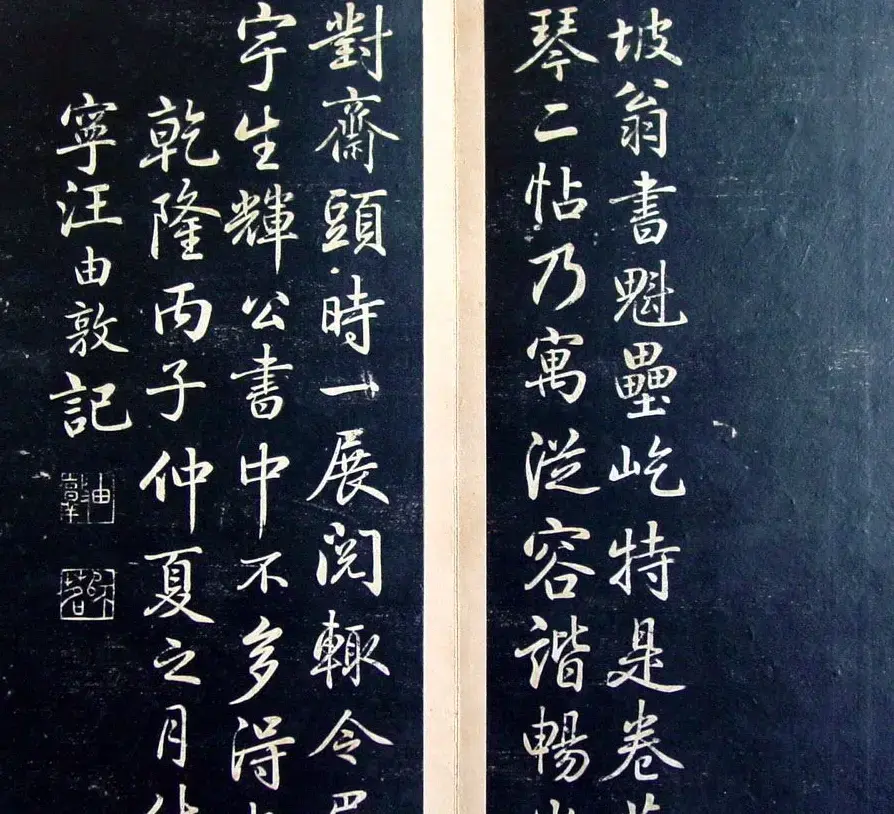 坡翁書魁壘屹特是卷
琴二帖乃寓從容諧暢
對齋頭時一展閱輙令
宇生輝公書中不多得
乾隆丙子仲夏之月
寧汪由敦記
由敦